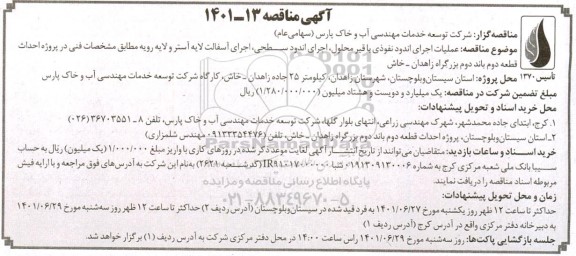 آگهی مناقصه ۱۳ـ۱۴۰۱
مناقصه‌گزار: شرکت توسعه خدمات مهندسی آب و خاک پارس (سهامی‌عام)
موضوع مناقصه: عملیات اجرای اندود نفوذی با قیر محلول، اجرای اندود سطحی، اجرای آسفالت لایه آستر و لایه رویه مطابق مشخصات فنی در پروژه احداث
قطعه دوم باند دوم بزرگراه زاهدان ـ خاش
تأسیس ۱۳۷۰
محل پروژه: استان سیستان‌وبلوچستان، شهرستان زاهدان، کیلومتر ۲۵ جاده زاهدان ـ خاش، کارگاه شرکت توسعه خدمات مهندسی آب و خاک پارس
مبلغ تضمین شرکت در مناقصه: یک میلیارد و دویست و هشتاد میلیون (۱/۲۸۰/۰۰۰/۰۰۰) ریال
محل خرید اسناد و تحویل پیشنهادات:
۱. کرج، ابتدای جاده محمدشهر، شهرک مهندسی زراعی، انتهای بلوار گلها، شرکت توسعه خدمات مهندسی آب و خاک پارس، تلفن ۸ـ۳۶۷۰۳۵۵۱(۰۲۶)
۲. استان سیستان‌وبلوچستان، پروژه احداث قطعه دوم باند دوم بزرگراه زاهدان ـ خاش، تلفن (۰۹۱۳۳۳۵۴۴۷۶ مهندس شلمزاری)
خرید اسناد و ساعات بازدید: متقاضیان می‌توانند از تاریخ انتشار آگهی لغایت موعد ذکر شده در روزهای کاری با واریز مبلغ ۱/۰۰۰/۰۰۰ (یک میلیون) ریال به حساب
سیبا بانک ملی شعبه مرکزی کرج به شماره ۰۱۰۹۱۳۰۹۱۳۰۰۶ شبا به‌نام این شرکت به آدرس‌های فوق مراجعه و با ارایه فیش
مربوطه اسناد مناقصه را دریافت نمایند.
پایگاه اطلاع رسانی مناقصه و مزایده
۰۲۱-۸۸۳۴۹۶۷۰-۵
زمان و محل تحویل پیشنهادات:
حداکثر تا ساعت ۱۲ ظهر روز یکشنبه مورخ ۱۴۰۱/۰۶/۲۷ به فرد قید شده در سیستان‌وبلوچستان (آدرس ردیف ۲) حداکثر تا ساعت ۱۲ ظهر روز سه‌شنبه مورخ ۱۴۰۱/۰۶/۲۹
به دبیرخانه دفتر مرکزی واقع در آدرس کرج (آدرس ردیف ۱)
جلسه بازگشایی پاکت‌ها: روز سه‌شنبه مورخ ۱۴۰۱/۰۶/۲۹ راس ساعت ۱۴:۰۰ در محل دفتر مرکزی شرکت به آدرس ردیف (۱) برگزار خواهد شد.